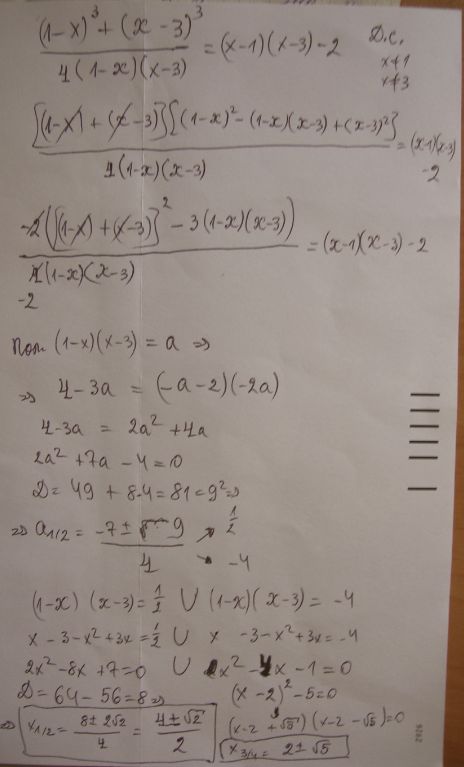 (1-x)³ + (x-3)³ / 4(1-x)(x-3) = (x-1)(x-3) - 2   D.C.
x≠1
x≠3
[(1-x) + (x-3)][(1-x)² - (1-x)(x-3) + (x-3)²] / 4(1-x)(x-3) = (x-1)(x-3) - 2
-2([(1-x) + (x-3)]² - 3(1-x)(x-3)) / 4(1-x)(x-3) = (x-1)(x-3) - 2
-2
Пол. (1-x)(x-3) = a ⇒
⇒ 4 - 3a = (-a-2)(-2a)
4-3a = 2a² + 4a
2a² + 7a - 4 = 0
D = 49 + 8.4 = 81 = 9² ⇒
⇒ a1/2 = -7 ± 9 / 4 → 1/2 → -4
(1-x)(x-3) = 1/2 ∪ (1-x)(x-3) = -4
x - 3 - x² + 3x = 1/2 ∪ x - 3 - x² + 3x = -4
2x² - 8x + 7 = 0 ∪ x² - 4x - 1 = 0
D = 64 - 56 = 8 ⇒ (x-2)² - 5 = 0
⇒ x1/2 = 8 ± 2√2 / 4 = 4 ± √2 / 2   (x-2+√5)(x-2-√5) = 0
x3/4 = 2 ± √5